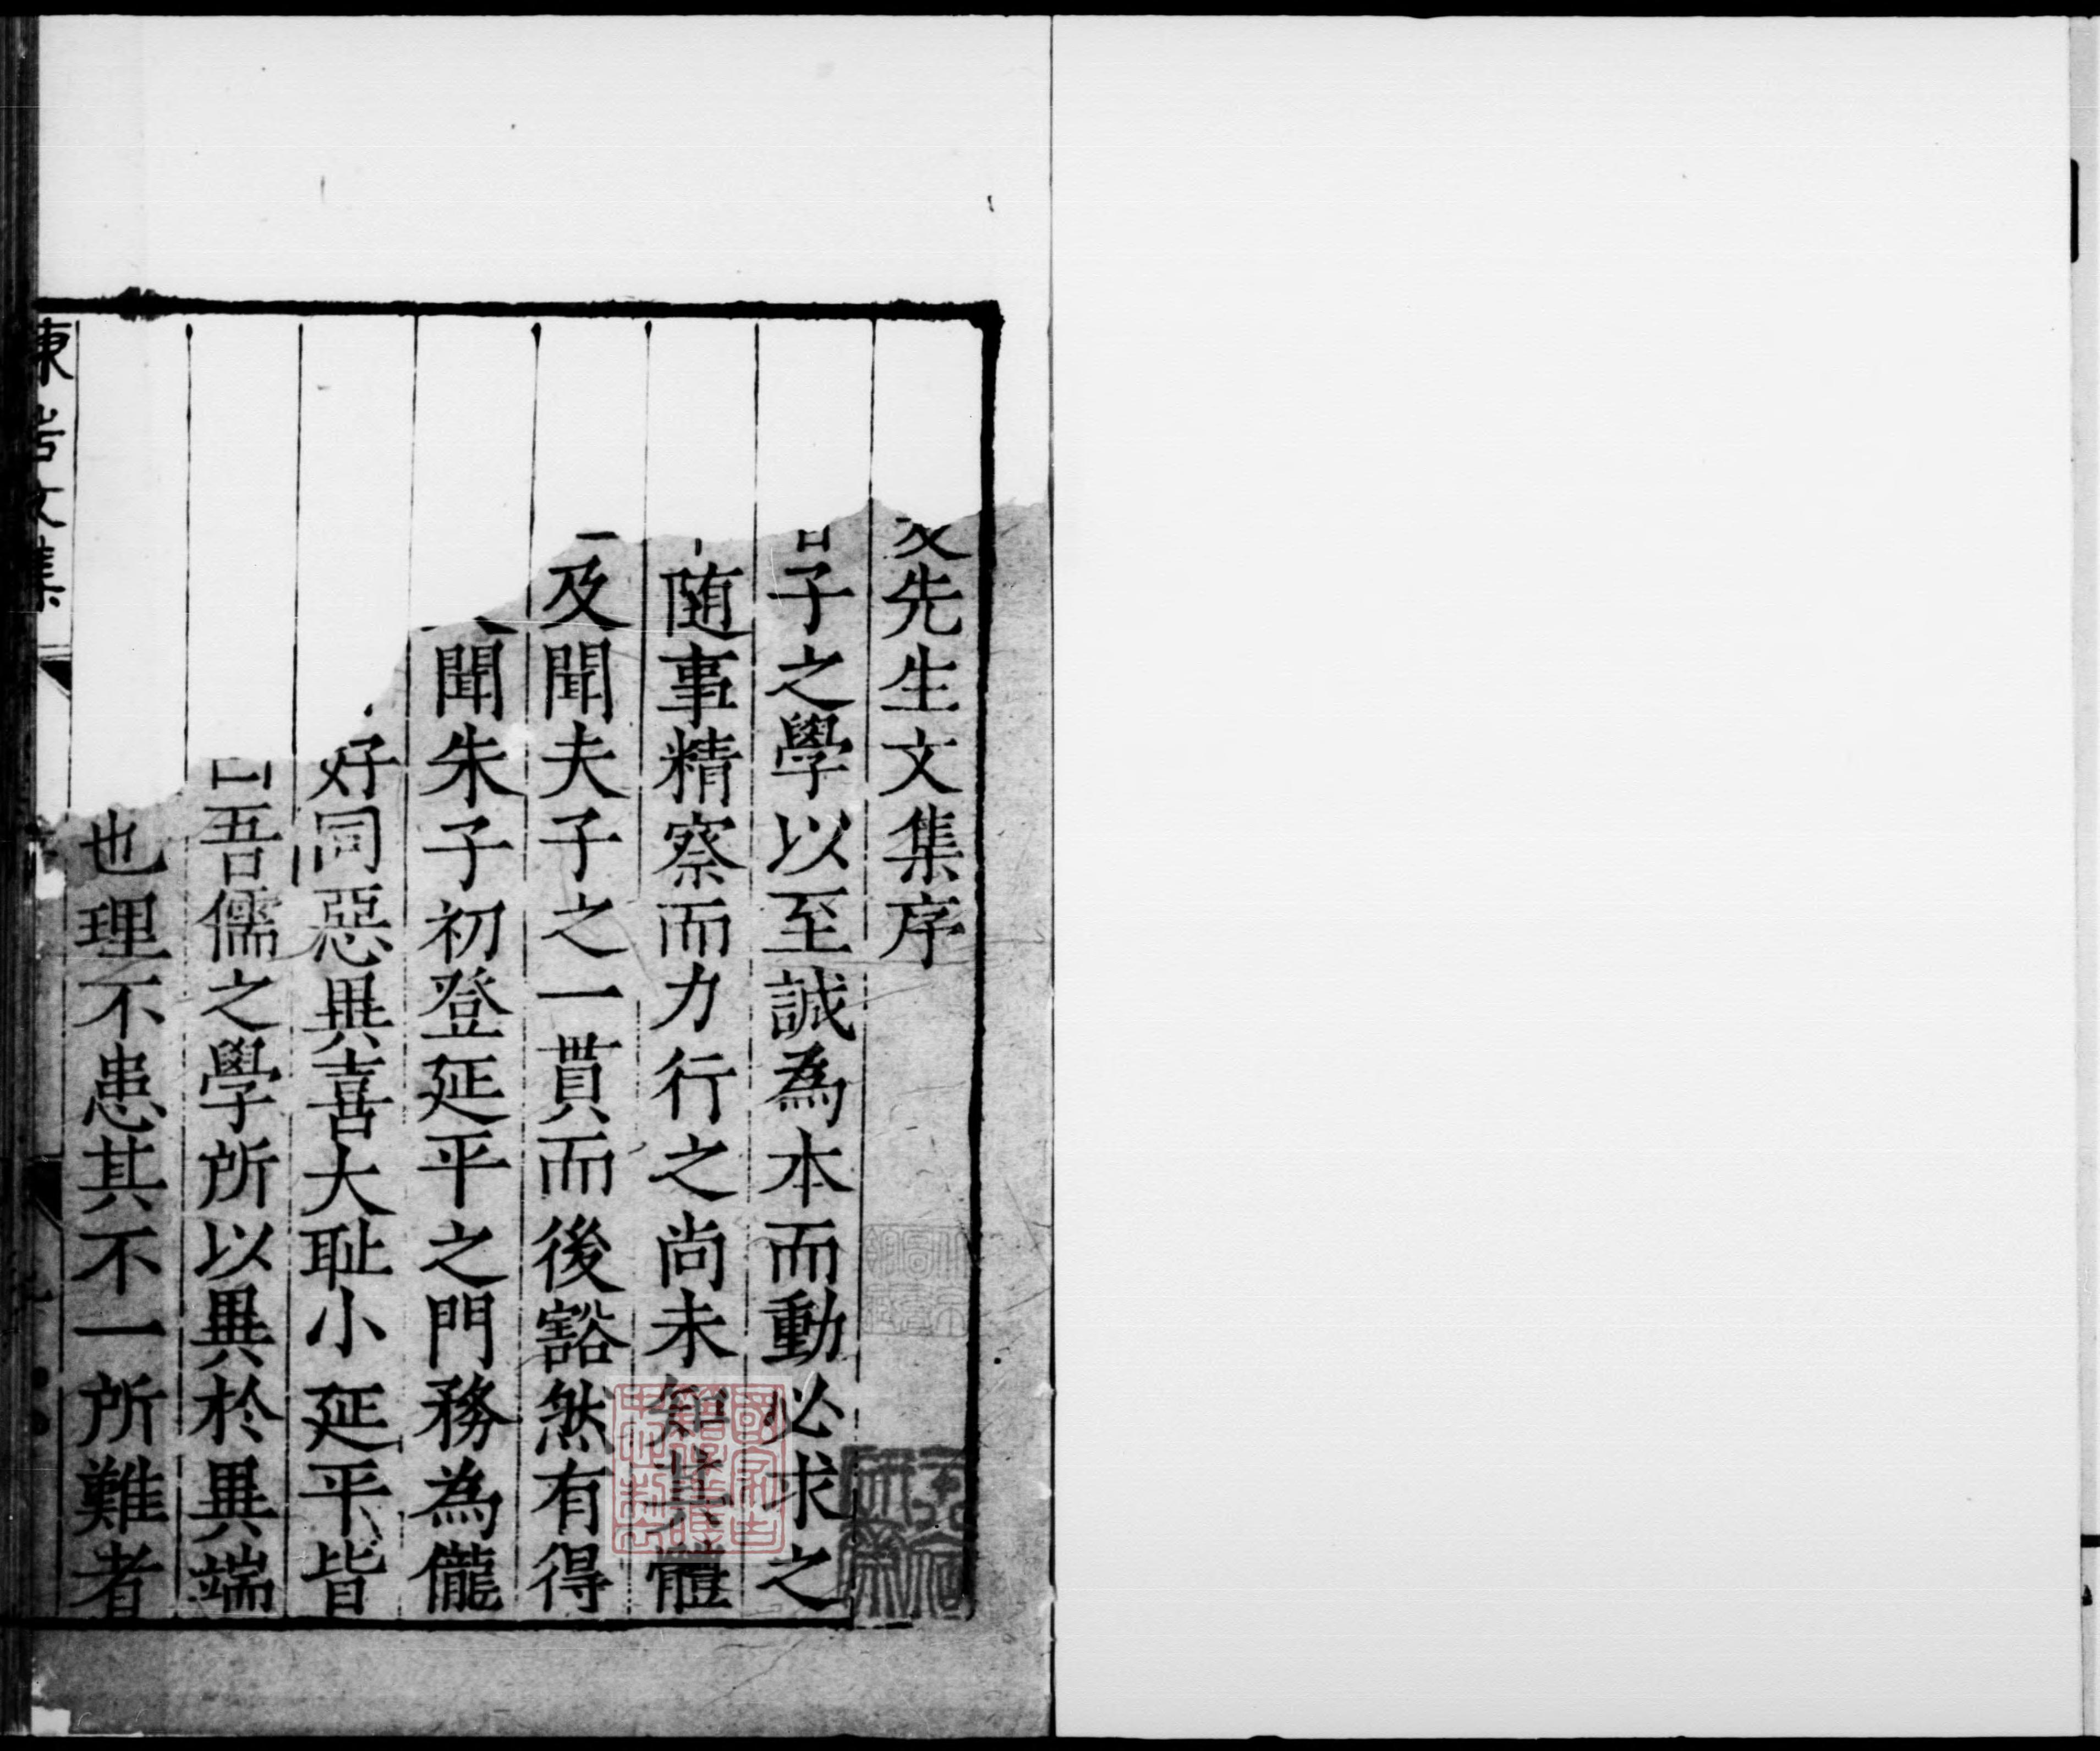 先生文集序
子之學以至誠為本而動必求之
随事精察而力行之尚未知其體
及聞夫子之一貫而後豁然有得
聞朱子初登延平之門務為儱
好同惡異喜大耻小延平皆
吾儒之學所以異於異端
也理不患其不一所難者
文集